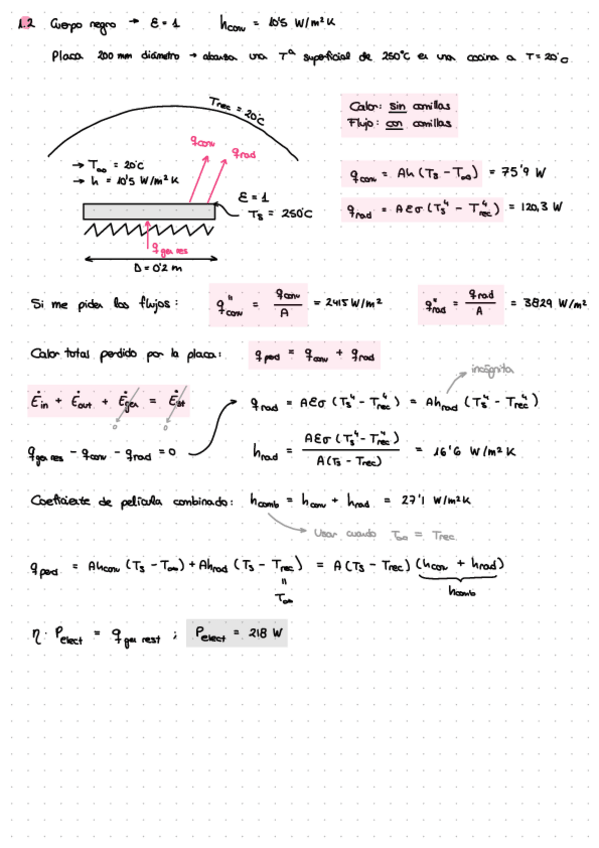 1.2 Cuerpo negro → ε = 1 h_conv = 10'5 W/m²K
Placa 200 mm diámetro → alcanza una Tª superficial de 250°C en una cocina a T = 20°C
T_rec = 20°C
q_conv
q_rad
→ T_∞ = 20°C
→ h = 10'5 W/m²K
ε = 1
T_s = 250°C
q_gen res
D = 0'2 m
Calor: sin comillas
Flujo: con comillas
q_conv = Ah (T_s - T_∞) = 75'9 W
q_rad = Aεσ (T_s⁴ - T_rec⁴) = 120,3 W
Si me piden los flujos: q''_conv = q_conv / A = 2415 W/m² q''_rad = q_rad / A = 3829 W/m²
Calor total perdido por la placa: q_perd = q_conv + q_rad
incógnita
Ė_in + Ė_out + Ė_gen = Ė_st
0 0
q_rad = Aεσ (T_s⁴ - T_rec⁴) = Ah_rad (T_s⁴ - T_rec⁴)
q_gen res - q_conv - q_rad = 0
h_rad = Aεσ (T_s⁴ - T_rec⁴) / A (T_s - T_rec) = 16'6 W/m²K
Coeficiente de película combinado: h_comb = h_conv + h_rad = 27'1 W/m²K
Usar cuando T_∞ = T_rec
q_perd = Ah_conv (T_s - T_∞) + Ah_rad (T_s - T_rec) = A (T_s - T_rec) (h_conv + h_rad)
=
T_∞
h_comb
η · P_elect = q_gen rest ; P_elect = 218 W